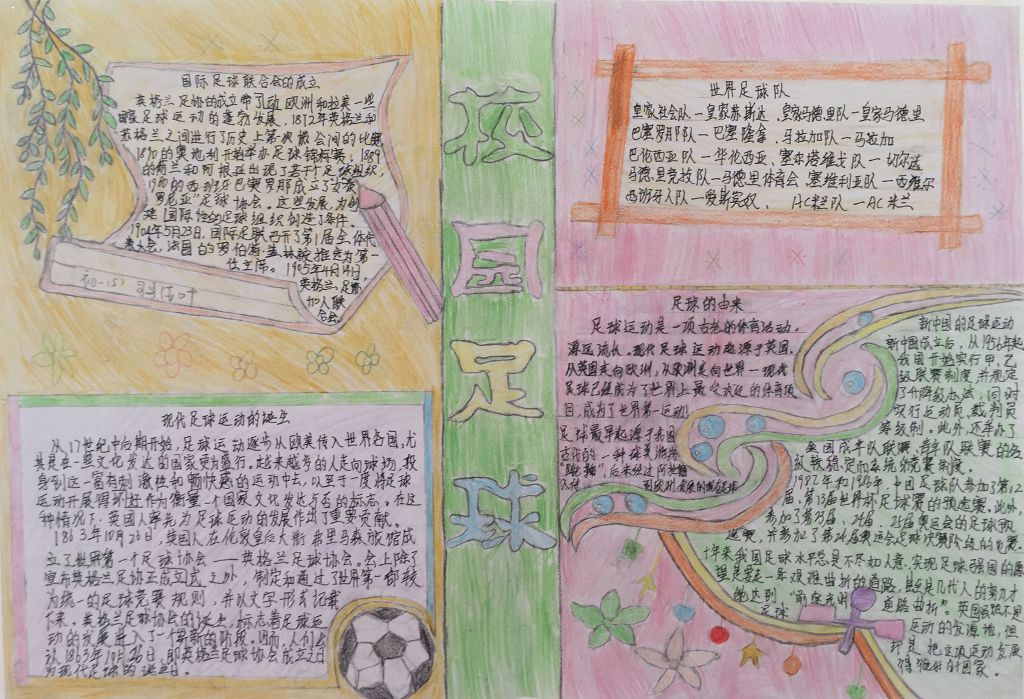 校园足球
国际足球联合会的成立
英格兰足协的成立带了动欧洲和拉美一些
国家足球运动的蓬勃发展,1872年英格兰和
苏格兰之间进行了历史上第次协会间的比赛
1890的奥地利开始举办足球锦标赛;1889
的荷兰和阿根廷出现了若干个足球组织,
1900的西班牙巴塞罗那成立了
足球协会。这些发展,为创
建国际性的足球组织创造了条件。
1904年5月23日,国际足联召开了第1届全体代
表大会,法国的罗伯特·盖林被推选为第一
任主席。1905年4月14日,
英格兰足协
加入联
合会。
初一(5)
现代足球运动的诞生
从17世纪中后期开始,足球运动逐步从欧美传入世界各国,尤
其是在一些文化发达的国家更为盛行。越来越多的人走向球场,投
身到这一富有刺激性和畅快感的运动中去,以至于一度将足球
运动开展得到还作为衡量一个国家文化发达与否的标志。在这
种情况下,英国人率先为足球运动的发展作出了重要贡献。
1863年10月26日,英国人在伦敦皇后大街弗里马森旅馆成
立了世界第一个足球协会——英格兰足球协会。会上除了
宣布英格兰足协正式成立之外,制定和通过了世界第一部较
为统一的足球竞赛规则,并以文字形式记载
下来。英格兰足球协会的诞生,标志着足球运
动的发展进入了一个崭新的阶段。因而,人们公
认1863年10月26日,即英格兰足球协会成立之日
为现代足球的诞生日。
世界足球队
皇家社会队—皇家苏斯达、皇家马德里队—皇家马德里
巴塞罗那队—巴塞隆拿、马拉加队—马拉加
巴伦西亚队—华伦西亚、塞尔塔维戈队—切尔达
马德里竞技队—马德里体育会、塞维利亚队—西维尔
西班牙人队—爱斯宾奴、 AC米兰队—AC米兰
足球的由来
足球运动是一项古老的体育活动,
源远流长。现代足球运动起源于英国,
从英国走向欧洲,从欧洲走向世界一现代
足球已经成为了世界上最受欢迎的体育项
目,成为了世界第一运动
足球最早起源于我国
古代的一种球类游戏
“蹴鞠”,后来经过阿拉伯
人传到欧洲,发展的现代足球
新中国的足球运动
新中国成立后,从1956年起
我国开始实行甲、乙
级联赛制度,并规定
了升降级办法,同时
实行运动员、裁判员
等级制。此外,还举办了
全国成年队联赛、青年队联赛的各
级较稳定而系统的竞赛制度。
1982年和1986年,中国足球队参加了第12
届、第13届世界杯足球赛的预选赛。此外,
参加了第23届、24届、25届奥运会的足球预
选赛,并参加了第24届奥运会足球决赛阶段的的比赛。
十年来我国足球水平总是不尽如人意,实现足球强国的愿
望是要走一条艰难曲折的道路,甚至是几代人的努力才
能达到,“前途光明 道路曲折”。英国虽然不是
足球 运动的发源地,但
却是把这项运动发展
得很好的国家。